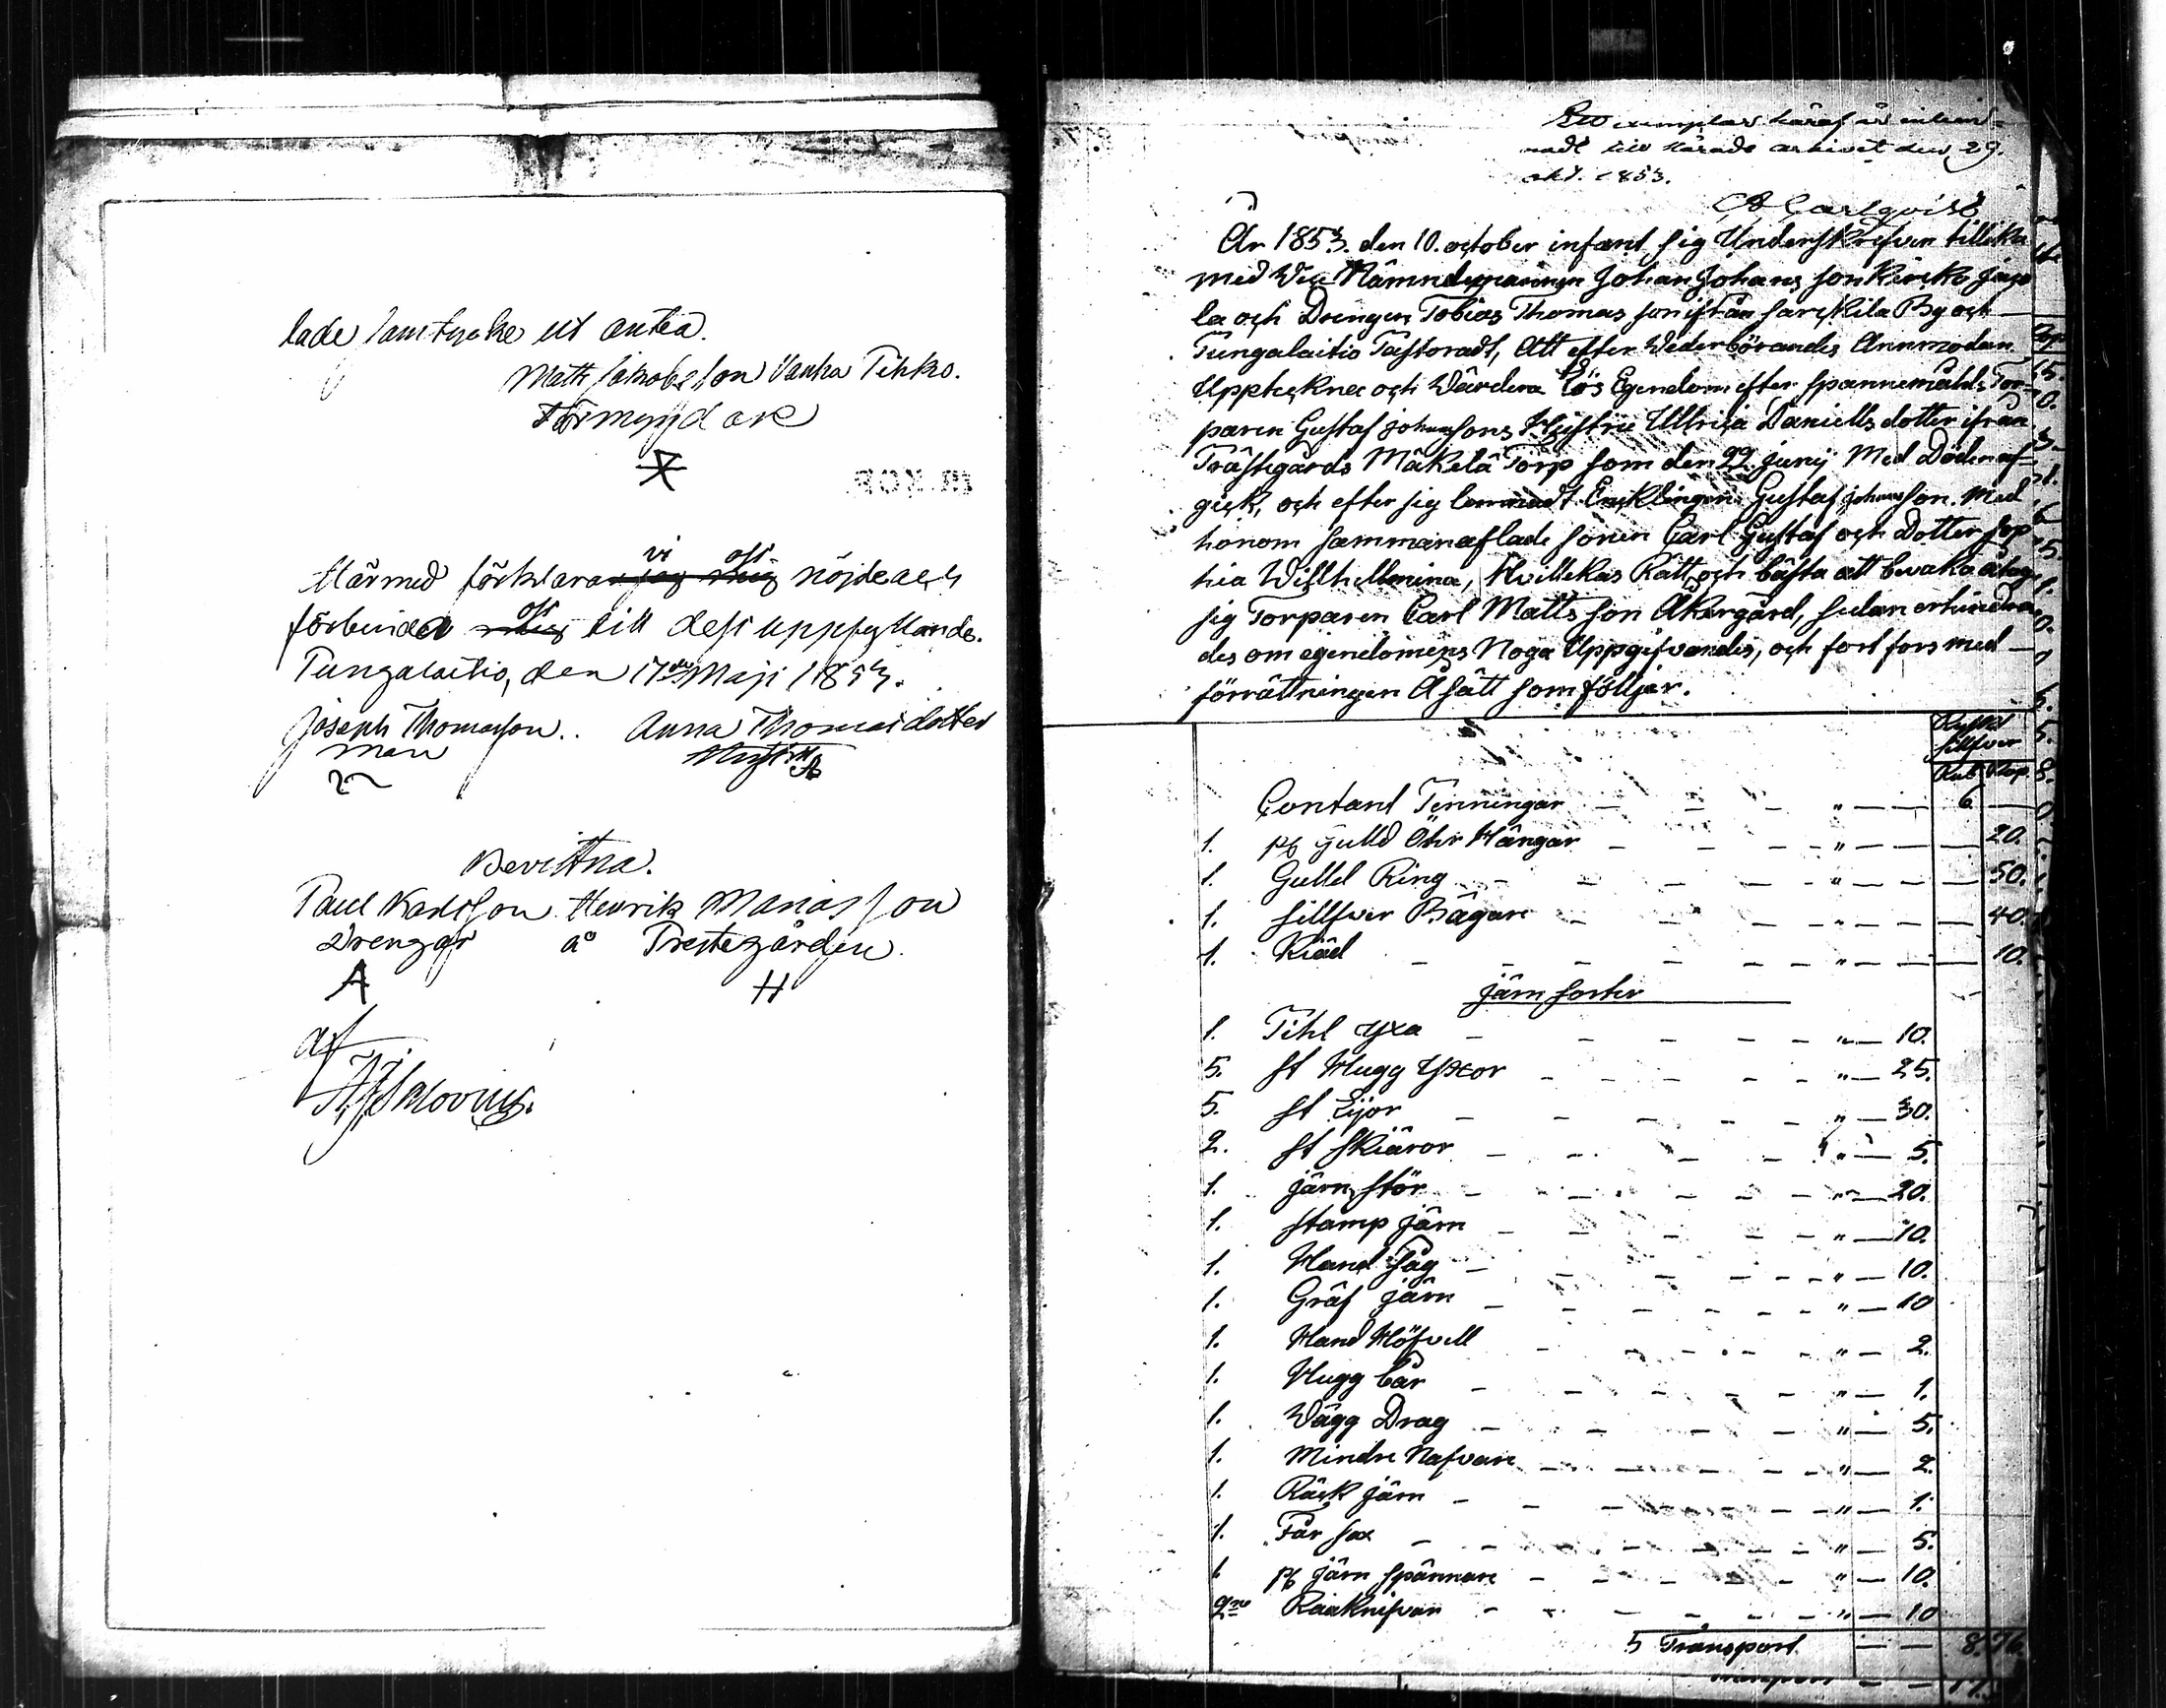 lade samtycke ut antea.
Matts Jakobsson Vanha Pihko.
Förmyndare
Härmed förklarar vi oss nöjde och
förbinda oss till dess uppfyllande.
Pungalaitio, den 17de Maji 1853.
Joseph Thomasson. Anna Thomasdotter
man Hustru
Bevittna.
Paul Karlsson Henrik Mariasson
Drengar å Prestegården.
af
Ett exemplar häraf är inläm-
nadt till härads arkivet den 29.
okt. 1853.
Carlqvist
År 1853. den 10. october infant sig Underskrefven tillika
med Vice Nämndemannen Johan Johans son Kircko jaco
la och Drengen Tobias Thomas son ifrån Sarckila By och
Pungalaitio Pastoradt, Att efter Wederbörandes Anmodan
Upptekna och Wärdera Lös Egendom efter Spannemåhls Tor-
paren Gustaf Johanssons Hustru Ulrica Daniells dotter ifrån
Prästegårds Mäkelä Torp som den 22 junij Med Döden af-
gick, och efter sig lemnadt Encklingen Gustaf Johansson. Med
honom sammanaflade Sonen Carl Gustaf och Dotter Sop
hia Willhellmina, Hvillkas Rätt och bästa att bevaka åtog
sig Torparen Carl Matts son Åkergård, sedan erhindra
des om egendomens Noga Uppgifvandes, och fort fors med
förrättningen Å sätt som följer.
Ryskt
Sillfver
Rub Kop.
Contant Penningar " 6
1. pr Gulld Öhr Hängar " 20.
1. Gulld Ring " 50.
1. Sillfver Bägare " 40.
1. Kiäd " 10.
Järn sorter
1. Pihl Yxa " 10.
5. st Hugg Yxor " 25.
5. st Lijor " 30.
2. st Skiäror " 5.
1. Järn Stör " 20.
1. Stamp Järn " 10.
1. Hand Såg " 10.
1. Gräf Järn " 10
1. Hand Höfvell " 2.
1. Hugg bår " 1.
1. Wägg Drag " 5.
1. Mindre Nafvare " 2.
1. Räck Järn " 1.
1. Får Sax " 5.
1 pr Järn Spännare " 10.
2ne Raaknifvar " 10
Transport 8. 76.